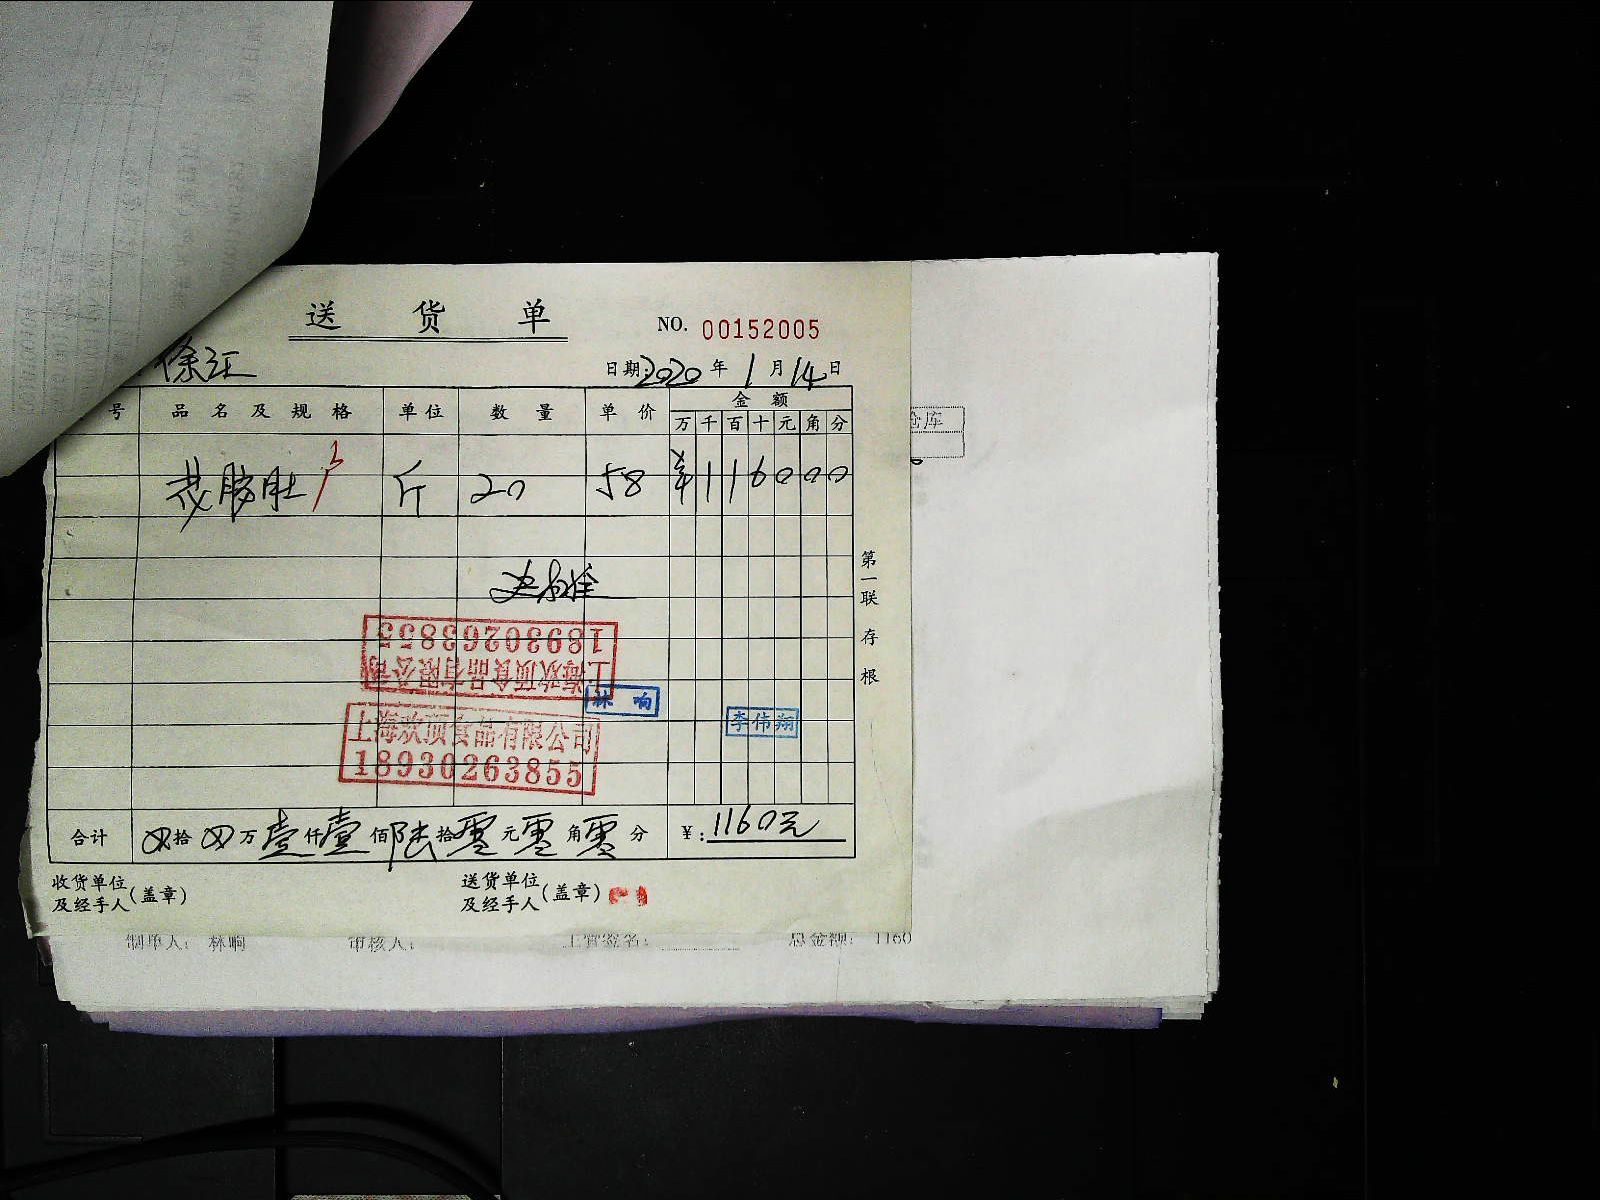 送 货 单
NO. 00152005
徐汇
日期:2020 年 1 月 14 日
号 品 名 及 规 格 单 位 数 量 单 价 金 额
万 千 百 十 元 角 分
花胶肚 斤 20 58 ¥116000
第一联 存根
18930263855
上海欢顶食品有限公司
林 响
李伟翔
上海欢顶食品有限公司
18930263855
合计 ⊗拾 ⊗万 壹仟 壹佰 陆拾 零元 零角 零分 ¥:1160元
收货单位及经手人(盖章)
送货单位及经手人(盖章)
仓库
制单人: 林响 审核人: 主管签名: 总金额: 1160